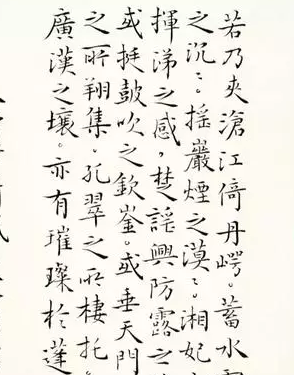 若乃夾滄江倚丹崿。蓄水
之沉〻。搖巖煙之漠〻。湘妃
揮涕之感，楚謠興防露之
或挺鼓吹之欽崟。或垂天門
之所翔集。孔翠之所棲托。
廣漢之壤。亦有璀璨於蓬